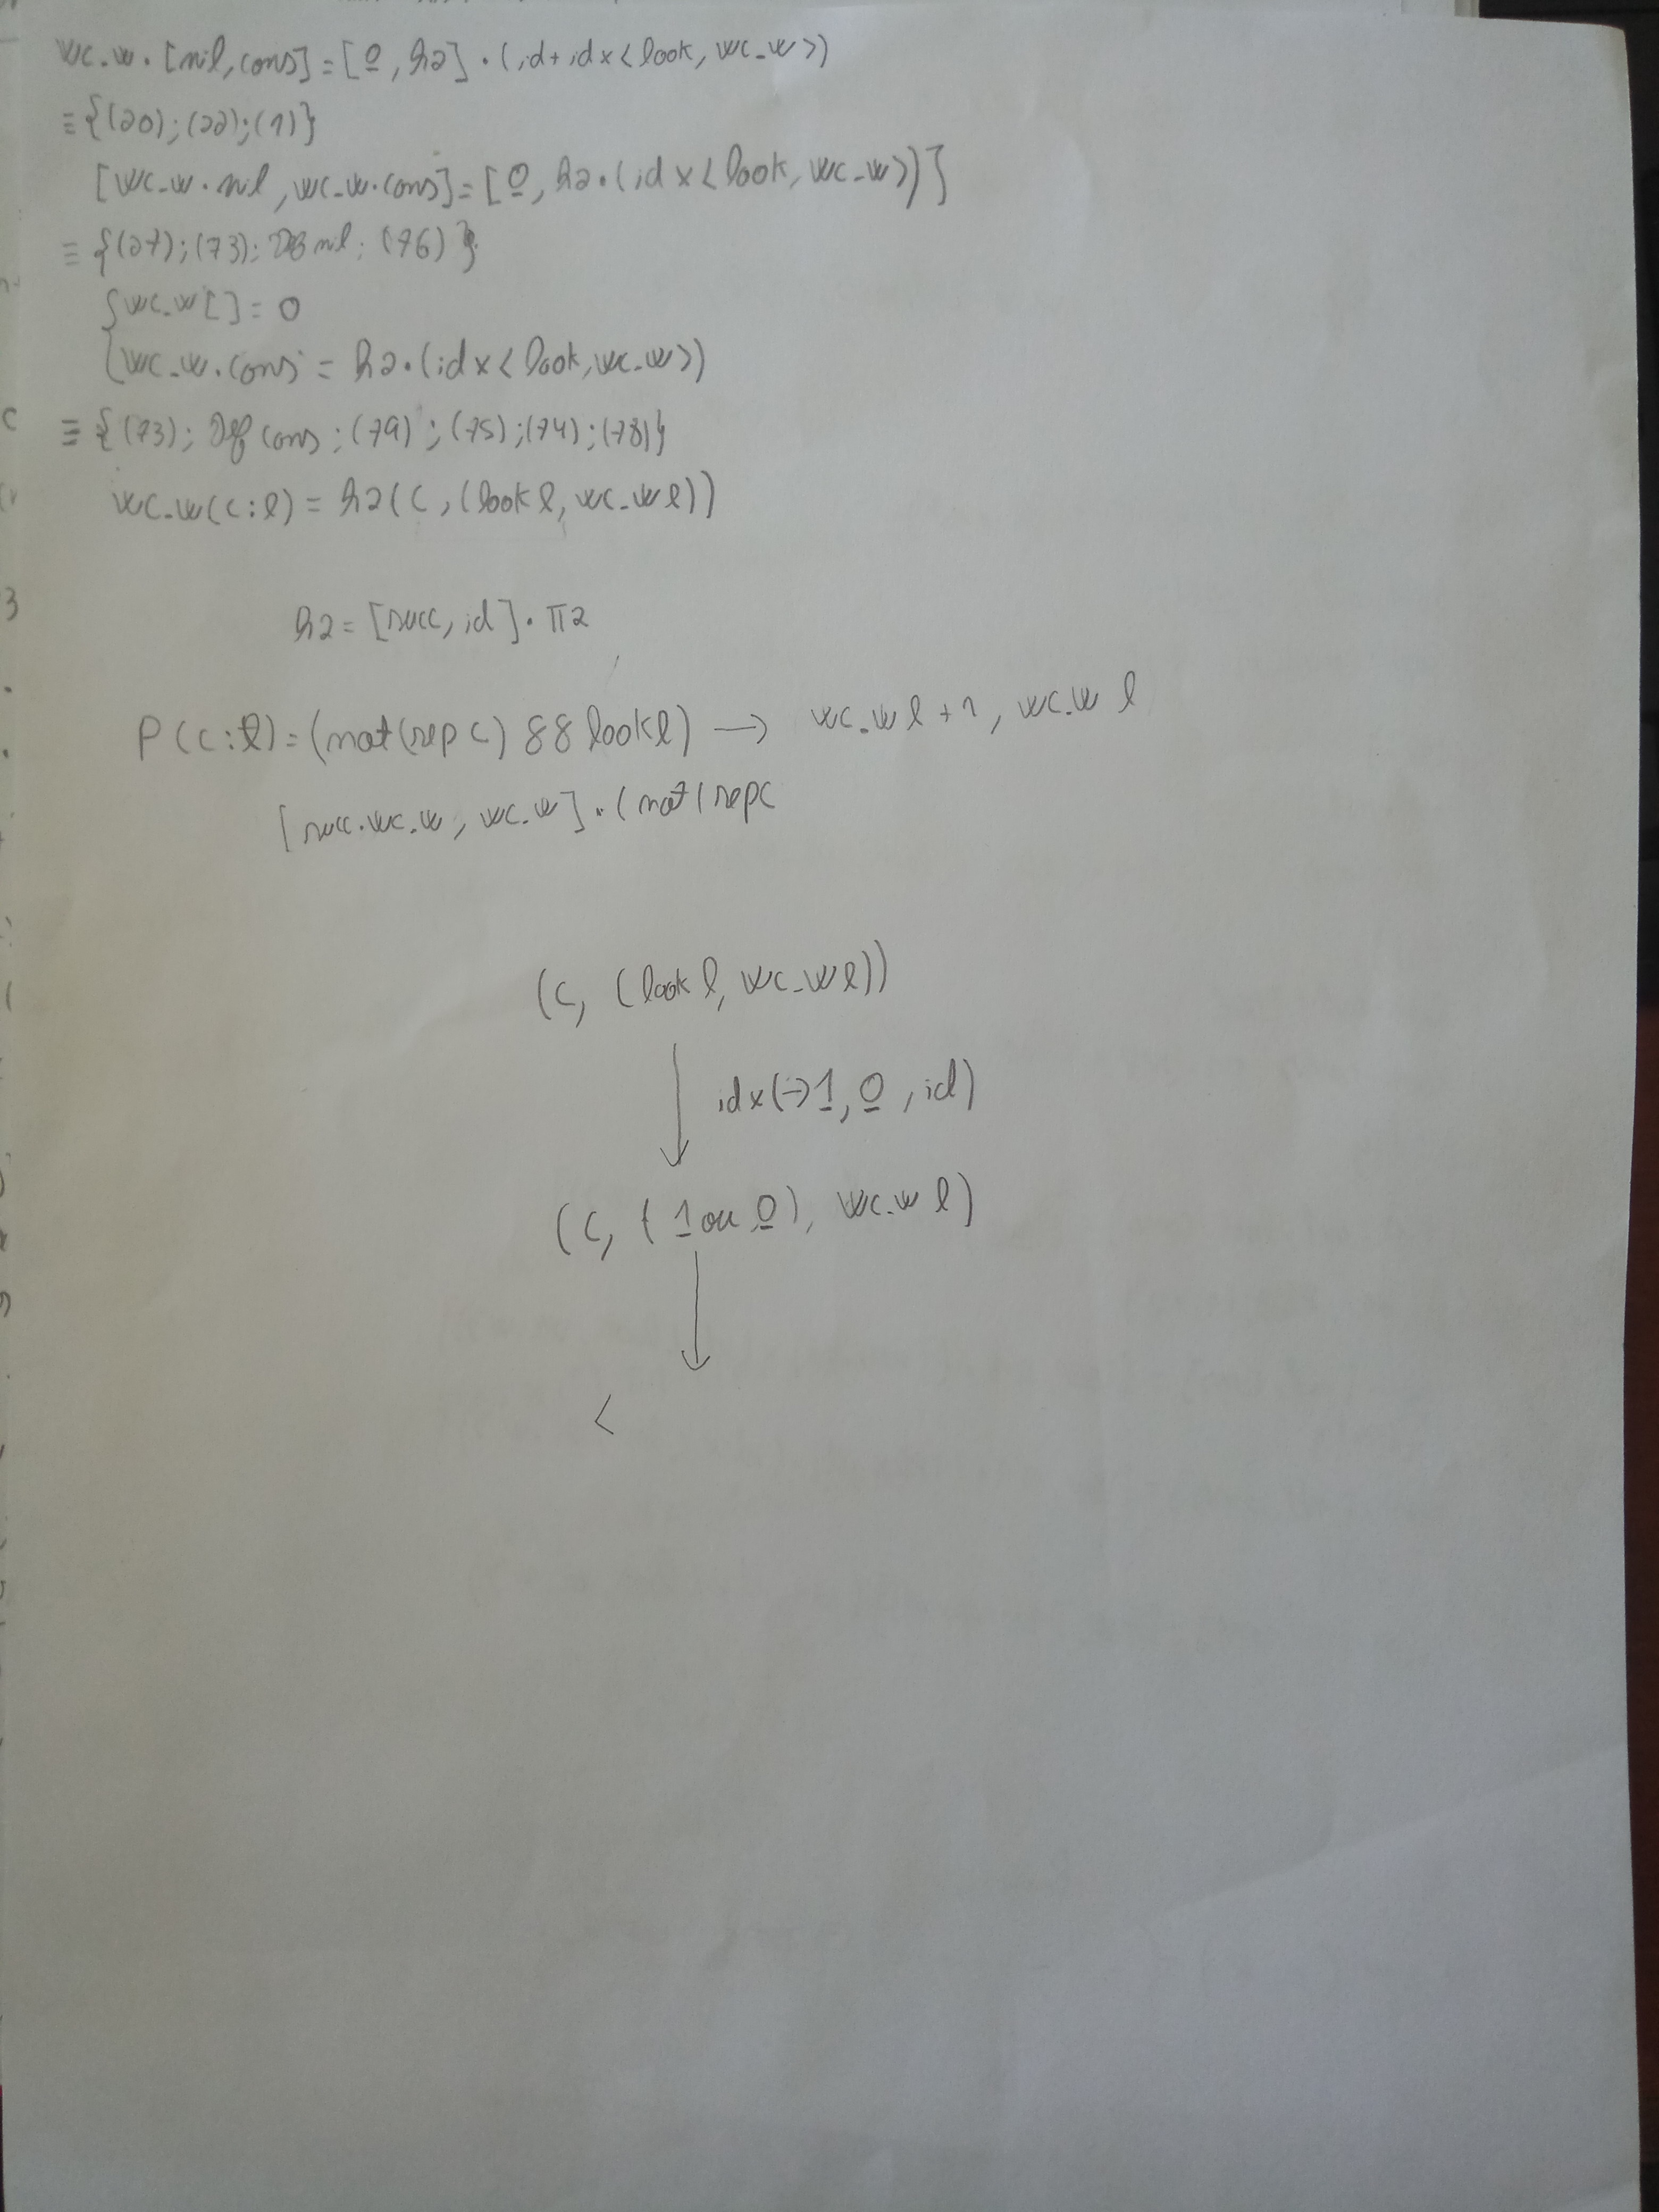 wc_w · [nil, cons] = [0, h2] · (id + id x < look, wc_w >)
≡ {(20); (22); (1)}
[wc_w · nil, wc_w · cons] = [0, h2 · (id x < look, wc_w >)]
≡ {(27); (73); Def nil; (76)}
{ wc_w [] = 0
{ wc_w · cons = h2 · (id x < look, wc_w >)
≡ {(73); Def cons; (79); (75); (74); (78)}
wc_w (c:l) = h2 (c, (look l, wc_w l))
h2 = [succ, id] · π2
P (c:l) = (not (sep c) && look l) → wc_w l + 1, wc_w l
[succ · wc_w, wc_w] · (not (sep c
(c, (look l, wc_w l))
id x (→ 1, 0, id)
(c, (1 ou 0), wc_w l)
<